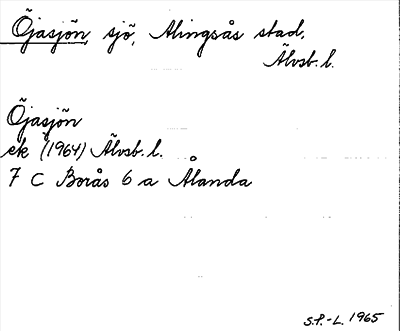 Öjasjön, sjö, Alingsås stad,
Älvsb. l.
Öjasjön
ek (1964) Älvsb. l.
7 C Borås 6 a Ålanda
S.P.-L. 1965